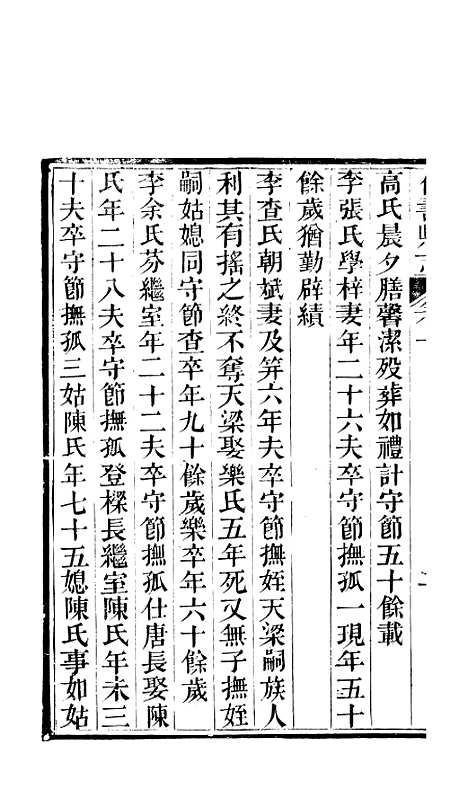 高氏晨夕膳馨潔殁葬如禮計守節五十餘載
李張氏學梓妻年二十六夫卒守節撫孤一現年五十
餘歲猶勤辟績
李查氏朝斌妻及笄六年夫卒守節撫姪天梁嗣族人
利其有搖之終不奪天梁娶樂氏五年死又無子撫姪
嗣姑媳同守節查卒年九十餘歲樂卒年六十餘歲
李余氏芬繼室年二十二夫卒守節撫孤仕唐長娶陳
氏年二十八夫卒守節撫孤登樑長繼室陳氏年未三
十夫卒守節撫孤三姑陳氏年七十五媳陳氏事如姑